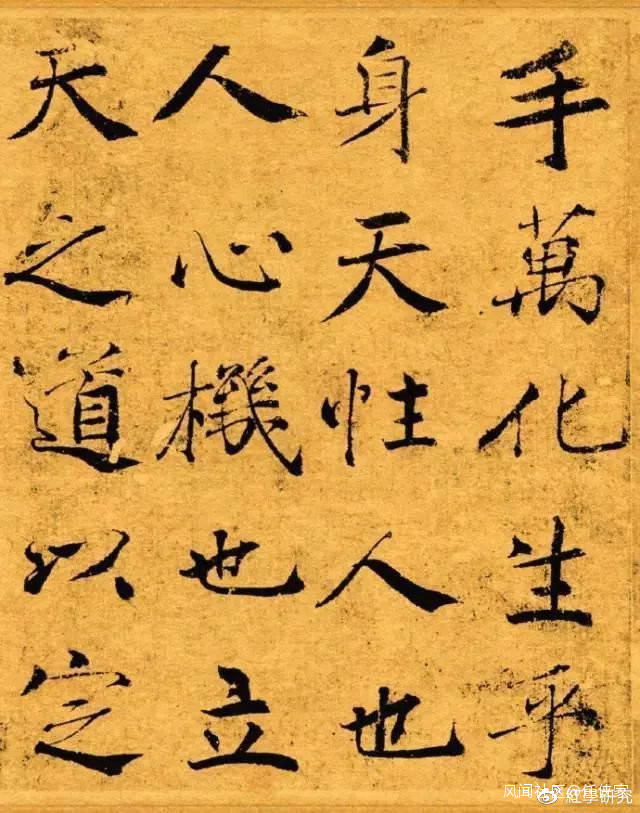 手萬化生乎
身天性人也
人心機也立
天之道以定
风闻社区@
研究